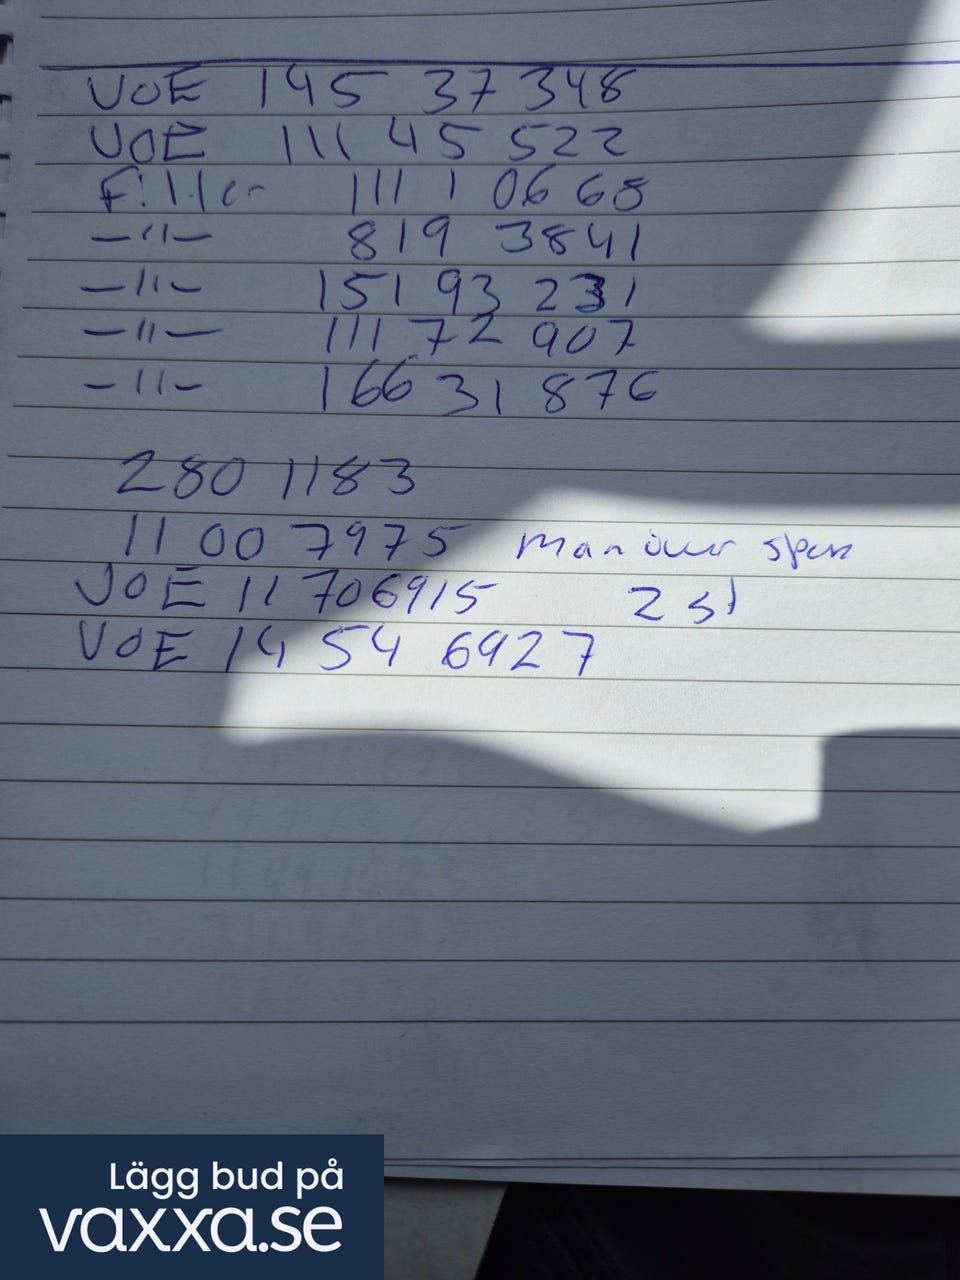 VOE 145 37 348
VOE 111 45 522
Filter 111 1 06 68
-"- 819 3841
-"- 151 93 231
-"- 111 72 907
-"- 166 31 876
280 1183
11 00 7975 manöver spak
VOE 11 706915 2 st
VOE 14 54 6927
Lägg bud på
vaxxa.se